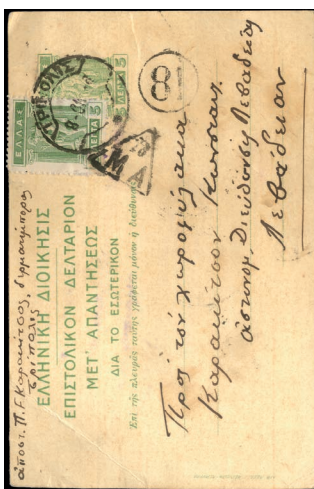 ἀποστ. Π. Γ. Καρακίτσος, δερματέμπορος
Τρίπολις
ΕΛΛΗΝΙΚΗ ΔΙΟΙΚΗΣΙΣ
ΕΠΙΣΤΟΛΙΚΟΝ ΔΕΛΤΑΡΙΟΝ
ΜΕΤ' ΑΠΑΝΤΗΣΕΩΣ
ΔΙΑ ΤΟ ΕΣΩΤΕΡΙΚΟΝ
Ἐπὶ τῆς πλευρᾶς ταύτης γράφεται μόνον ἡ διεύθυνσις
ΕΛΛΑΣ
5 ΛΕΠΤΑ 5
5 ΛΕΠΤΑ 5
ΤΡΙΠΟΛΙΣ
81
Πρὸς τὸν χωροφύλακα
Καρακίτσον Κωνσταν.
ἀστυνομ. Διεύθυνσιν Λεβαδείας
Λεβάδειαν